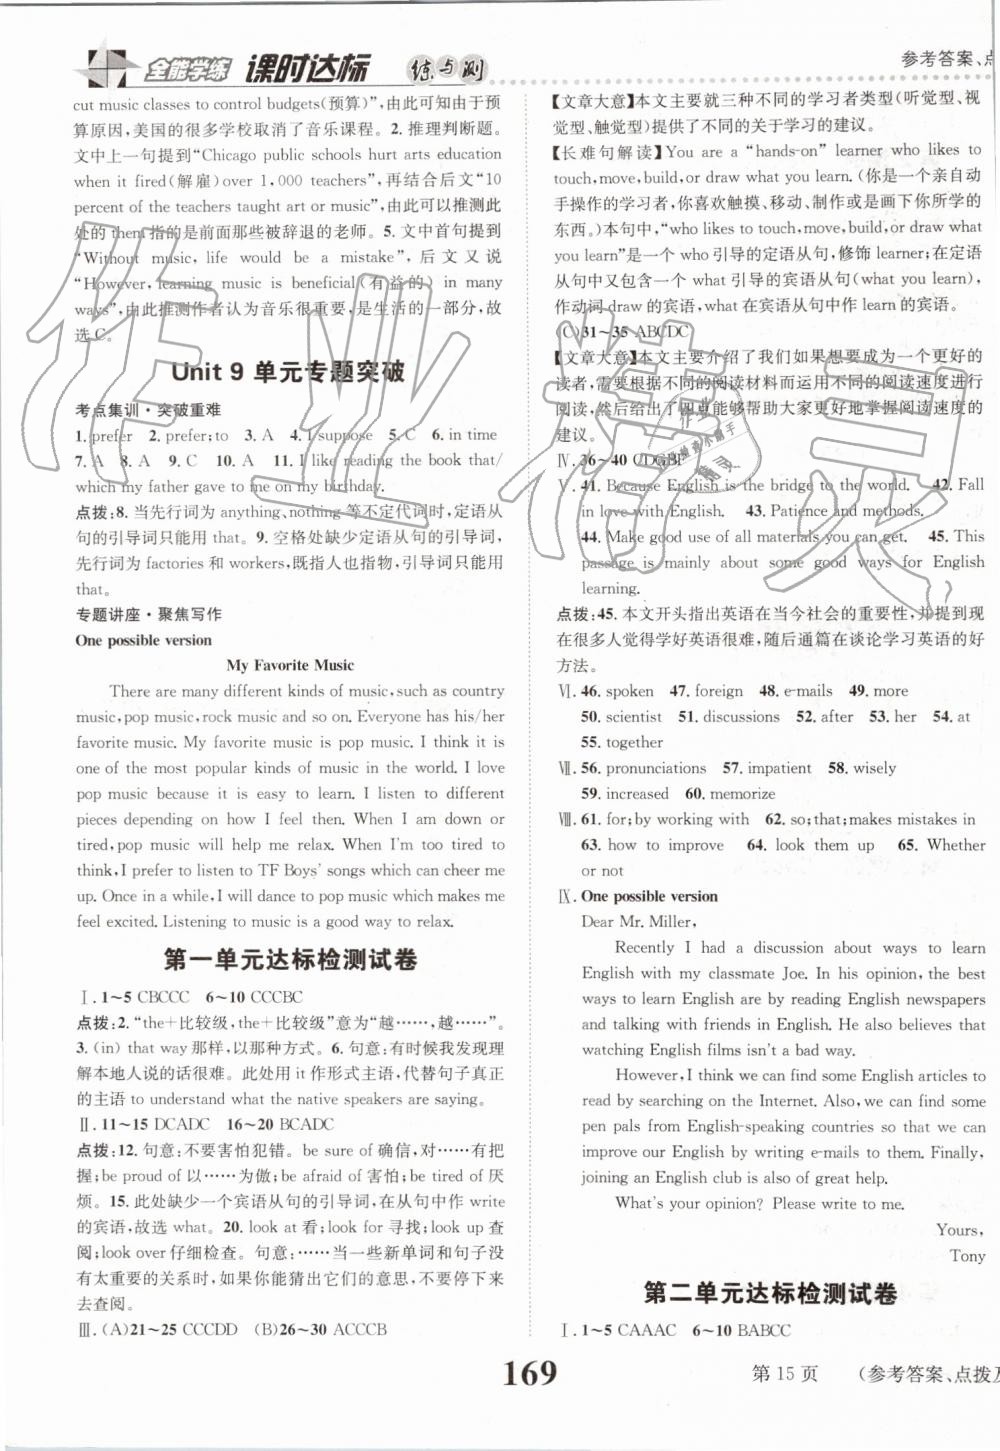 全能学练 课时达标 练与测
参考答案、点
cut music classes to control budgets(预算)”,由此可知由于预
算原因,美国的很多学校取消了音乐课程。2. 推理判断题。
文中上一句提到“Chicago public schools hurt arts education
when it fired(解雇)over 1,000 teachers”,再结合后文“10
percent of the teachers taught art or music”,由此可以推测此
处的 them 指的是前面那些被辞退的老师。5. 文中首句提到
“Without music, life would be a mistake”,后文又说
“However, learning music is beneficial (有益的) in many
ways”,由此推测作者认为音乐很重要,是生活的一部分,故
选 C。
Unit 9 单元专题突破
考点集训·突破重难
1. prefer 2. prefer;to 3. A 4. I suppose 5. C 6. in time
7. A 8. A 9. C 10. A 11. I like reading the book that/
which my father gave to me on my birthday.
点拨:8. 当先行词为 anything、nothing 等不定代词时,定语从
句的引导词只能用 that。9. 空格处缺少定语从句的引导词,
先行词为 factories 和 workers,既指人也指物,引导词只能用
that。
专题讲座·聚焦写作
One possible version
My Favorite Music
There are many different kinds of music,such as country
music,pop music,rock music and so on. Everyone has his/her
favorite music. My favorite music is pop music. I think it is
one of the most popular kinds of music in the world. I love
pop music because it is easy to learn. I listen to different
pieces depending on how I feel then. When I am down or
tired,pop music will help me relax. When I'm too tired to
think,I prefer to listen to TF Boys' songs which can cheer me
up. Once in a while,I will dance to pop music which makes me
feel excited. Listening to music is a good way to relax.
第一单元达标检测试卷
Ⅰ. 1~5 CBCCC 6~10 CCCBC
点拨:2. “the+比较级,the+比较级”意为“越……,越……”。
3. (in) that way 那样,以那种方式。6. 句意:有时候我发现理
解本地人说的话很难。此处用 it 作形式主语,代替句子真正
的主语 to understand what the native speakers are saying。
Ⅱ. 11~15 DCADC 16~20 BCADC
点拨:12. 句意:不要害怕犯错。be sure of 确信,对……有把
握;be proud of 以……为傲;be afraid of 害怕;be tired of 厌
烦。15. 此处缺少一个宾语从句的引导词,在从句中作 write
的宾语,故选 what。20. look at 看;look for 寻找;look up 查
阅;look over 仔细检查。句意:……当一些新单词和句子没有
太重要的关系时,如果你能猜出它们的意思,不要每次都停下
去查阅。
Ⅲ. (A)21~25 CCCDD (B)26~30 ACCCB
【文章大意】本文主要就三种不同的学习者类型(听觉型、视
觉型、触觉型)提供了不同的关于学习的建议。
【长难句解读】You are a “hands-on” learner who likes to
touch,move,build,or draw what you learn. (你是一个亲自动
手操作的学习者,你喜欢触摸、移动、制作或是画下你所学的
东西。)本句中,“who likes to touch,move,build,or draw what
you learn”是 who 引导的定语从句,修饰 learner;在定语
从句中又包含了一个 what 引导的宾语从句(what you learn),
作动词 draw 的宾语,what 在宾语从句中作 learn 的宾语。
(C)31~35 ABCDC
【文章大意】本文主要介绍了我们如果想要成为一个更好的
读者,需要根据不同的阅读材料而运用不同的阅读速度进行
阅读,然后给出了四点能够帮助大家更好地掌握阅读速度的
建议。
Ⅳ. 36~40 CDGBF
Ⅴ. 41. Because English is the bridge to the world. 42. Fall
in love with English. 43. Patience and methods.
44. Make good use of all materials you can get. 45. This
passage is mainly about some good ways for English
learning.
点拨:45. 本文开头指出英语在当今社会的重要性,并提到现
在很多人觉得学好英语很难,随后通篇在谈论学习英语的好
方法。
Ⅵ. 46. spoken 47. foreign 48. e-mails 49. more
50. scientist 51. discussions 52. after 53. her 54. at
55. together
Ⅶ. 56. pronunciations 57. impatient 58. wisely
59. increased 60. memorize
Ⅷ. 61. for;by working with 62. so;that;makes mistakes in
63. how to improve 64. look them up 65. Whether
or not
Ⅸ. One possible version
Dear Mr. Miller,
Recently I had a discussion about ways to learn
English with my classmate Joe. In his opinion, the best
ways to learn English are by reading English newspapers
and talking with friends in English. He also believes that
watching English films isn't a bad way.
However,I think we can find some English articles to
read by searching on the Internet. Also,we can find some
pen pals from English-speaking countries so that we can
improve our English by writing e-mails to them. Finally,
joining an English club is also of great help.
What's your opinion? Please write to me.
Yours,
Tony
第二单元达标检测试卷
Ⅰ. 1~5 CAAAC 6~10 BABCC
169
第 15 页
(参考答案、点拨及
作业精灵